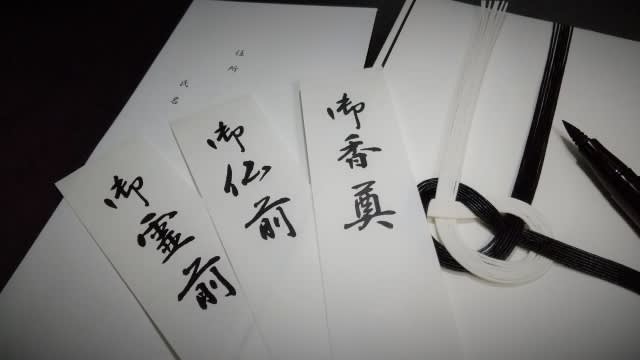 住所
氏名
御霊前
御仏前
御香奠